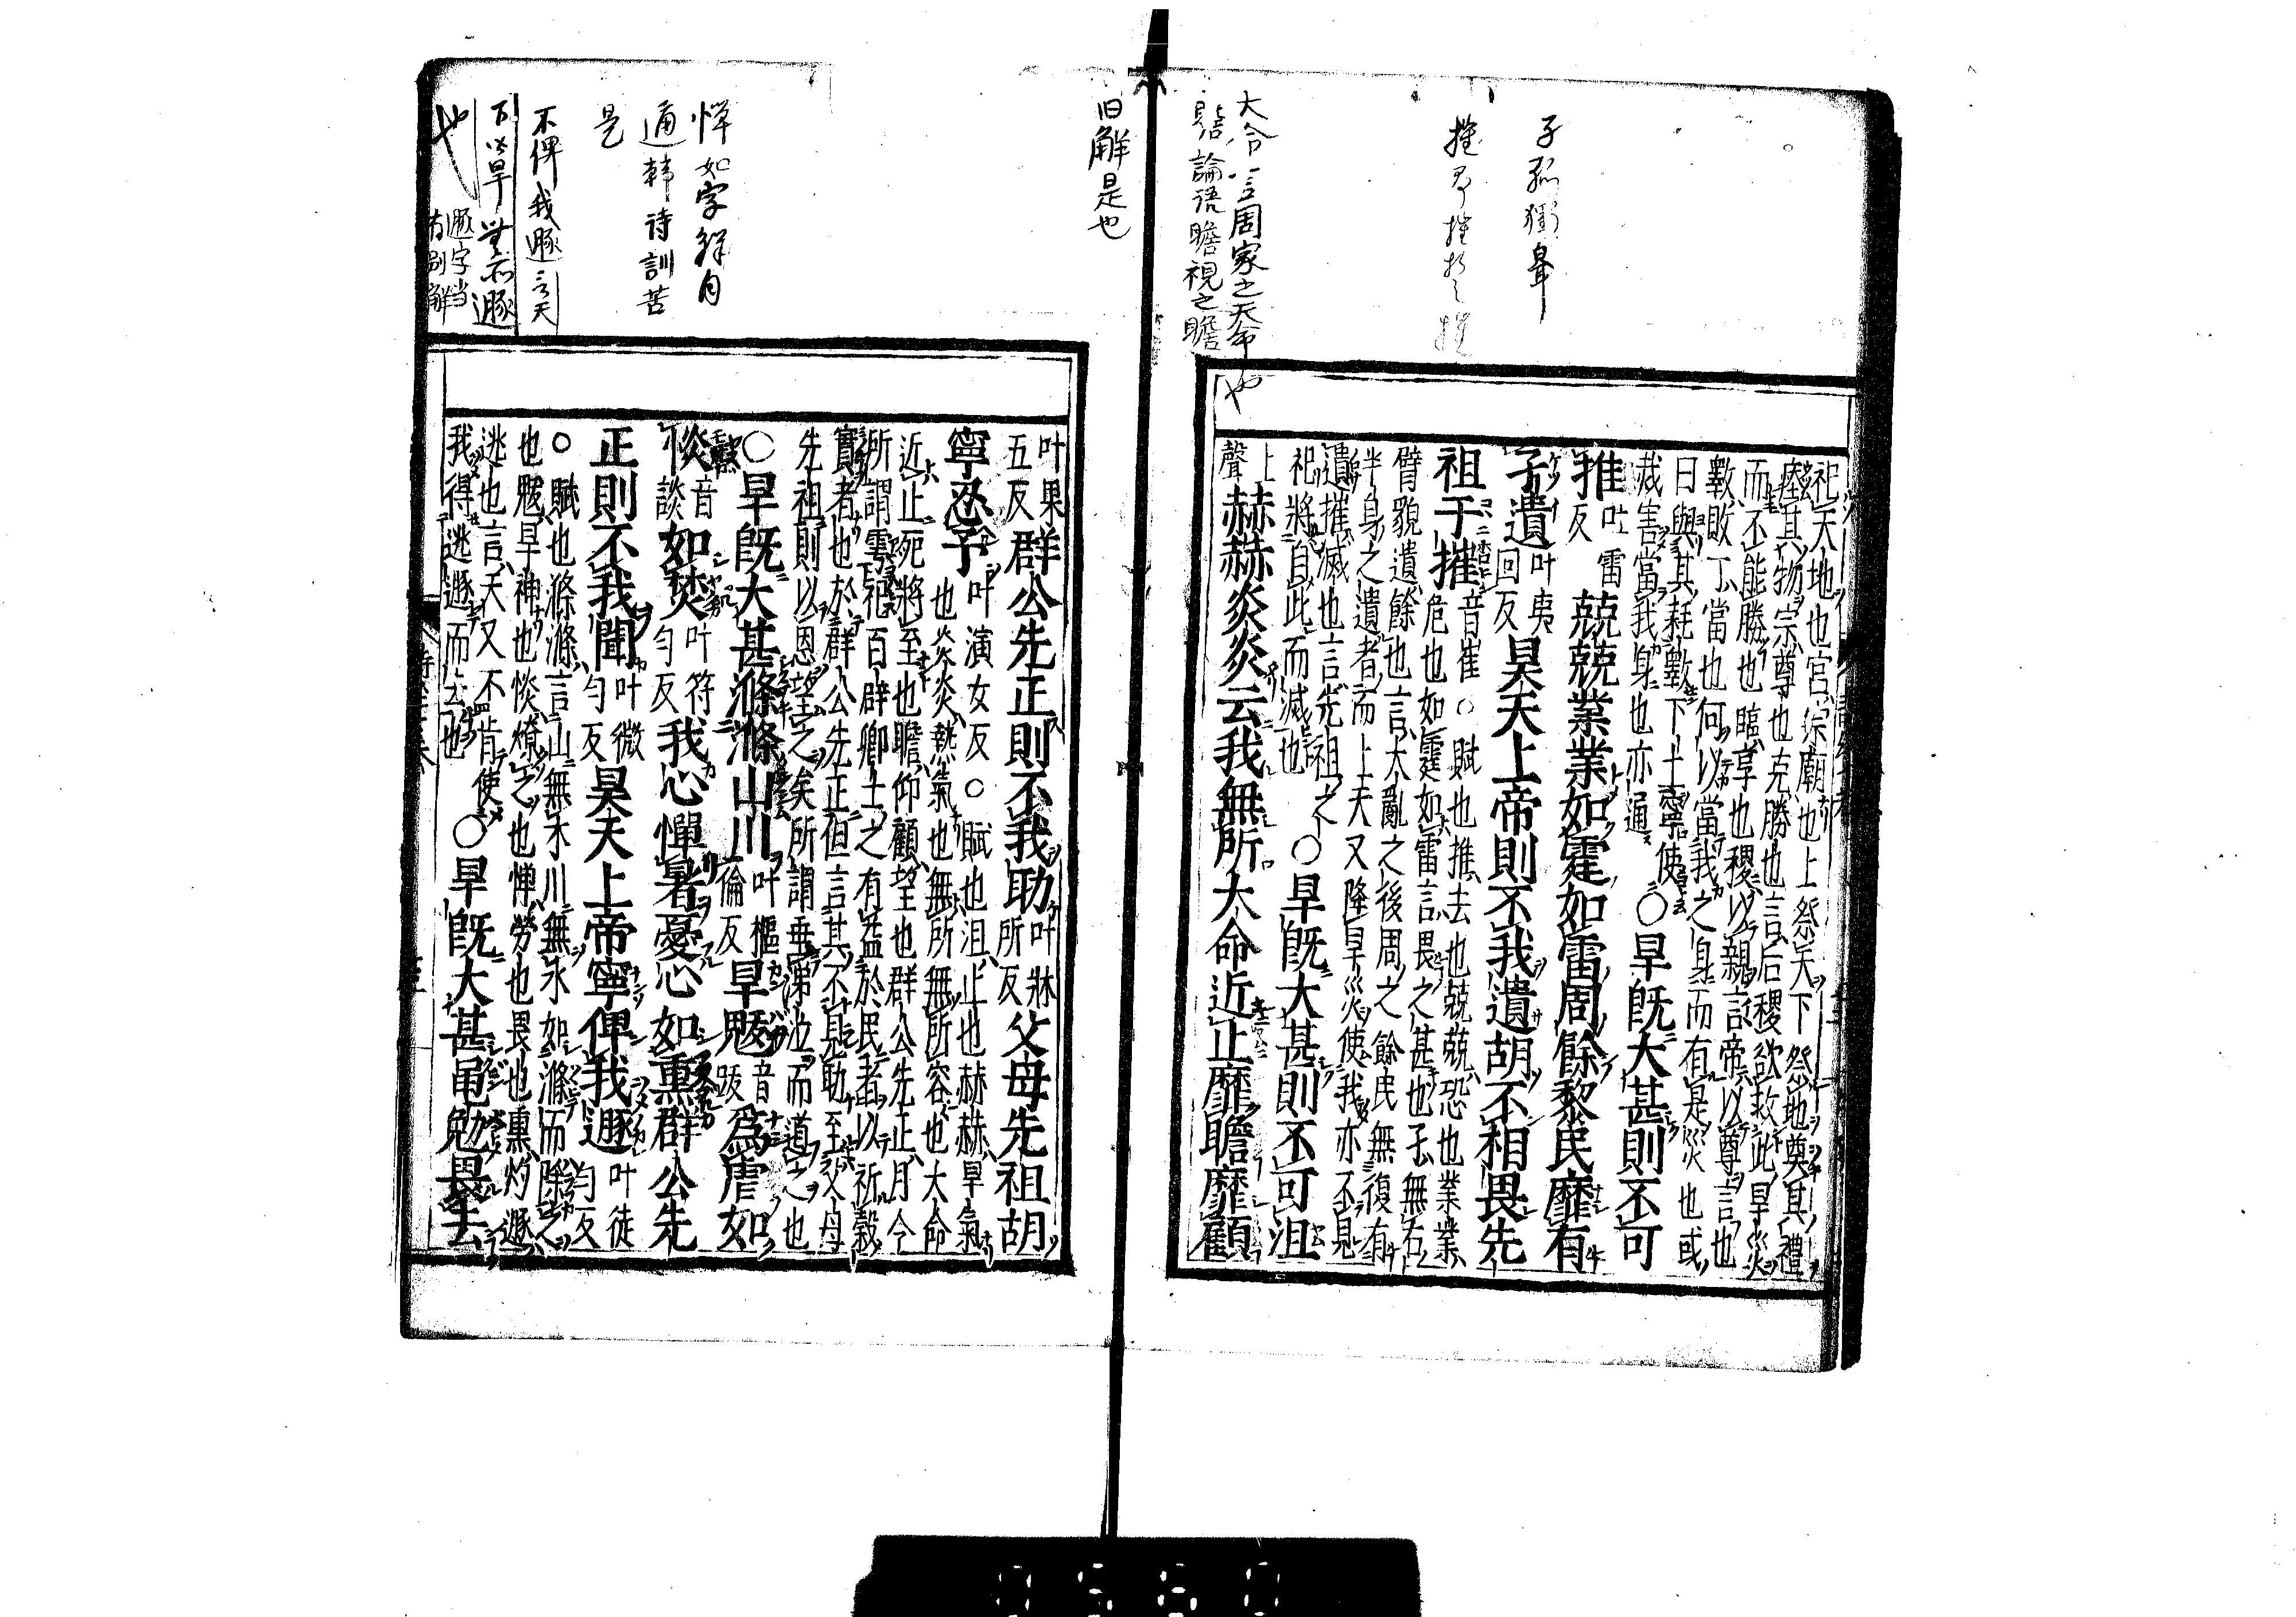 大命言周家之天命也
瞻論語瞻視之瞻
旧解是也
祀天地也宮宗廟也上祭天下祭地奠其禮
瘞其物宗尊也克勝也言后稷欲救此旱災
而不能勝也臨享也稷以親言帝以尊言也
斁敗丁當也何以當我之身而有是災也或
曰與其耗斁下土寧使
烖害當我身也亦通○旱既大甚則不可
推吐雷反兢兢業業如霆如雷周餘黎民靡有
孑遺叶夷回反昊天上帝則不我遺胡不相畏先
祖于摧音崔○賦也推去也兢兢恐也業業
危也如霆如雷言畏之甚也孑無右
臂貌遺餘也言大亂之後周之餘民無復有
半身之遺者而上天又降旱災使我亦不見
遺摧滅也言先祖之
祀將自此而滅也○旱既大甚則不可沮
上聲赫赫炎炎云我無所大命近止靡瞻靡顧
叶果五反群公先正則不我助叶牀所反父母先祖胡
寧忍予叶演女反○賦也沮止也赫赫旱氣
也炎炎熱氣也無所無所容也大命
近止死將至也瞻仰顧望也群公先正月令
所謂雩祀百辟卿士之有益於民者以祈穀
實者也於群公先正但言其不見助至父母
先祖則以恩望之矣所謂垂涕泣而道之也
○旱既大甚滌滌山川叶樞倫反旱魃音跋爲虐如
惔音談如焚叶符勻反我心憚暑憂心如熏群公先
正則不我聞叶微勻反昊天上帝寧俾我遯叶徒勻反
○賦也滌滌言山無木川無水如滌而除之
也魃旱神也惔燎之也憚勞也畏也熏灼遯
逃也言天又不肯使
我得逃遯而去也○旱既大甚黽勉畏去
憚如字解自
通韓詩訓苦
是
不俾我遯言天
遯字当
有別解